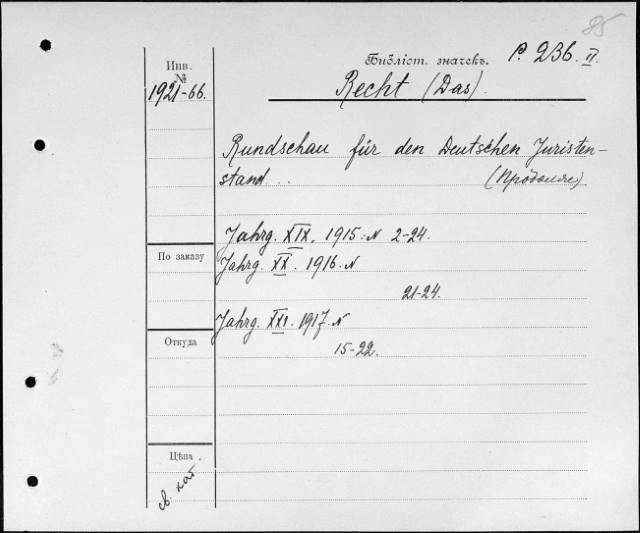 85
Инв. №
1921-66.
Библіот. значекъ. Р. 236. II.
Recht (Das).
Rundschau für den Deutschen Juristen-
stand... (Продолж)
Jahrg. XIX. 1915. N 2-24.
По заказу
Jahrg. XX. 1916. N
21-24.
Jahrg. XXI. 1917. N
Откуда
15-22.
Цѣна.
св. каб